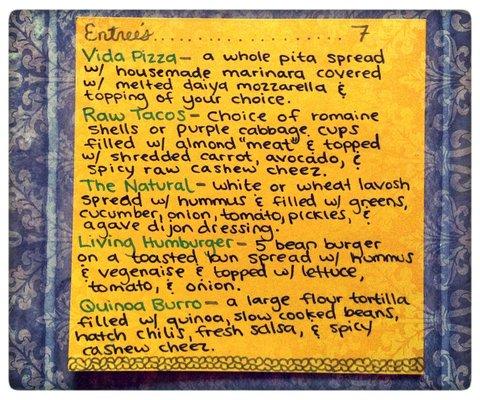 Entree's....................7
Vida Pizza - a whole pita spread
w/ housemade marinara covered
w/ melted daiya mozzarella &
topping of your choice.
Raw Tacos - Choice of romaine
shells or purple cabbage cups
filled w/ almond "meat" & topped
w/ shredded carrot, avocado, &
spicy raw cashew cheez.
The Natural - white or wheat lavosh
spread w/ hummus & filled w/ greens,
cucumber, onion, tomato, pickles, &
agave dijon dressing.
Living Humburger - 5 bean burger
on a toasted bun spread w/ hummus
& vegenaise & topped w/ lettuce,
tomato, & onion.
Quinoa Burro - a large flour tortilla
filled w/ quinoa, slow cooked beans,
hatch chilis, fresh salsa, & spicy
cashew cheez.